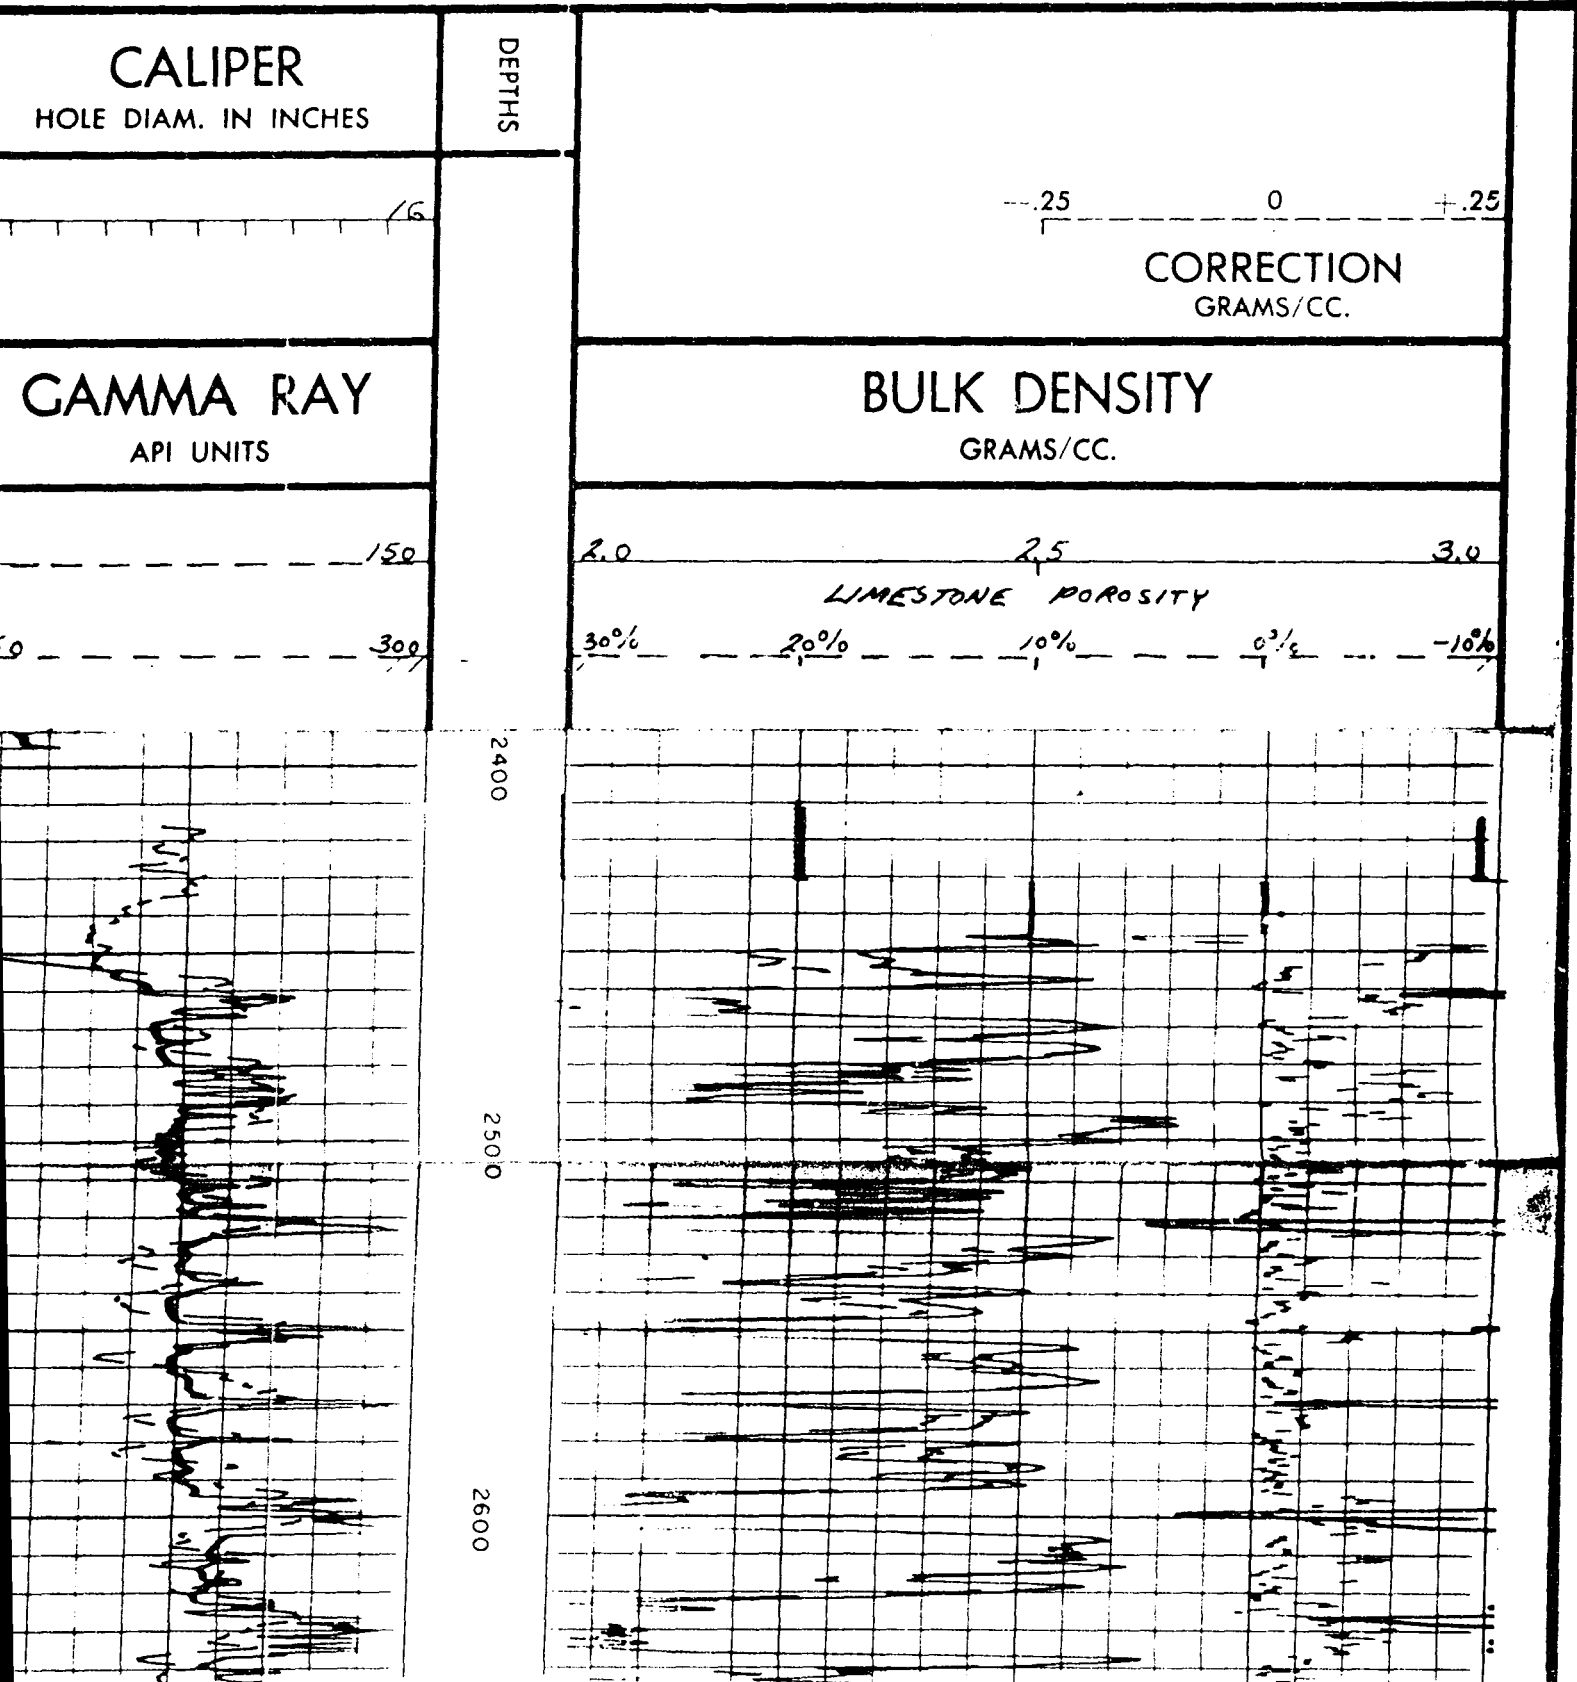 CALIPER
HOLE DIAM. IN INCHES
DEPTHS
16
--.25 0 +.25
CORRECTION
GRAMS/CC.
GAMMA RAY
API UNITS
BULK DENSITY
GRAMS/CC.
150
2.0 2.5 3.0
LIMESTONE POROSITY
300
30% 20% 10% 0% -10%
2400
2500
2600